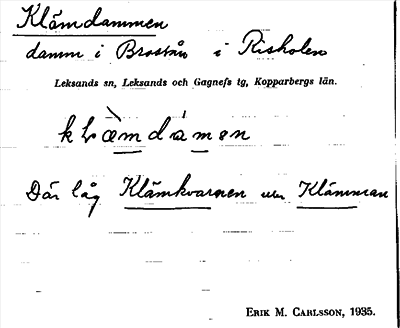 Klämdammen
damm i Brostån i Risholen
Leksands sn, Leksands och Gagnefs tg, Kopparbergs län.
Där låg Klämkvarnen Klämman
ERIK M. CARLSSON, 1935.